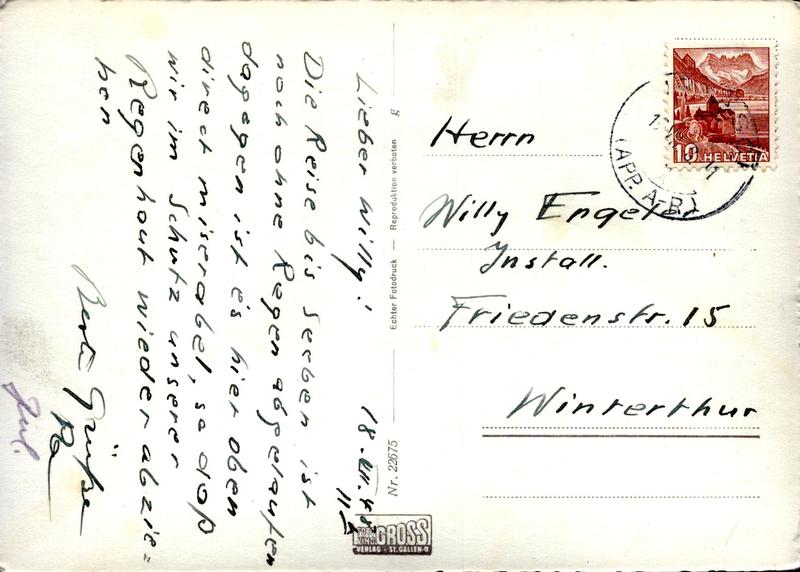 Lieber Willy!
18. VII. 48
Die Reise bis Seeben ist
noch ohne Regen abgelaufen
dagegen ist es hier oben
direct miserabel, so daß
wir im Schutz unserer
Regenhaut wieder abzie=
hen
Beste Grüße
Nr. 22675
Echter Fotodruck — Reproduktion verboten
g
GROSS
VERLAG - ST. GALLEN-O
10 HELVETIA
(APP. A-R.)
Herrn
Willy Engeler
Install.
Friedenstr. 15
Winterthur